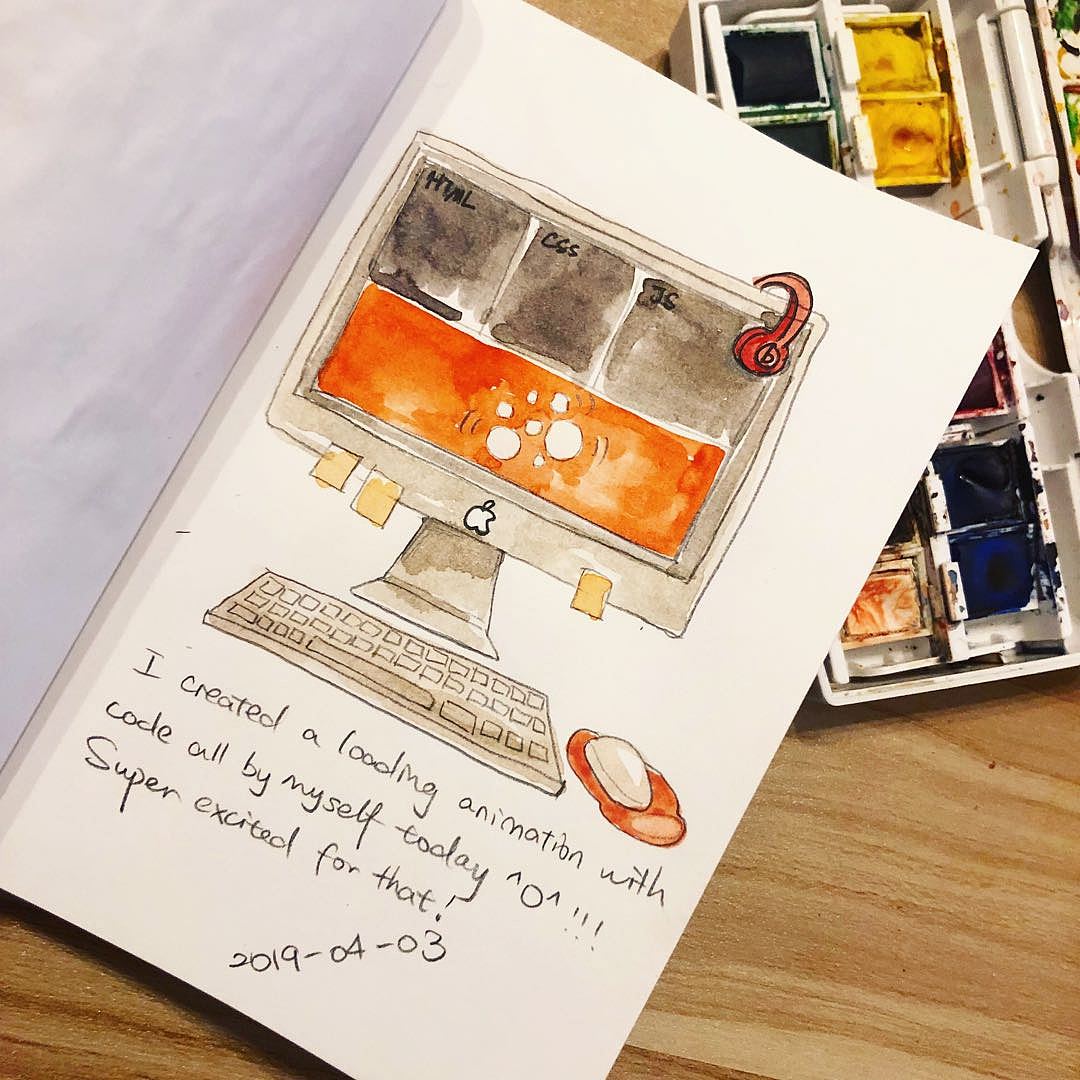 HTML
CSS
JS
I created a loading animation with
code all by myself today ^O^ !!!
Super excited for that!
2019-04-03